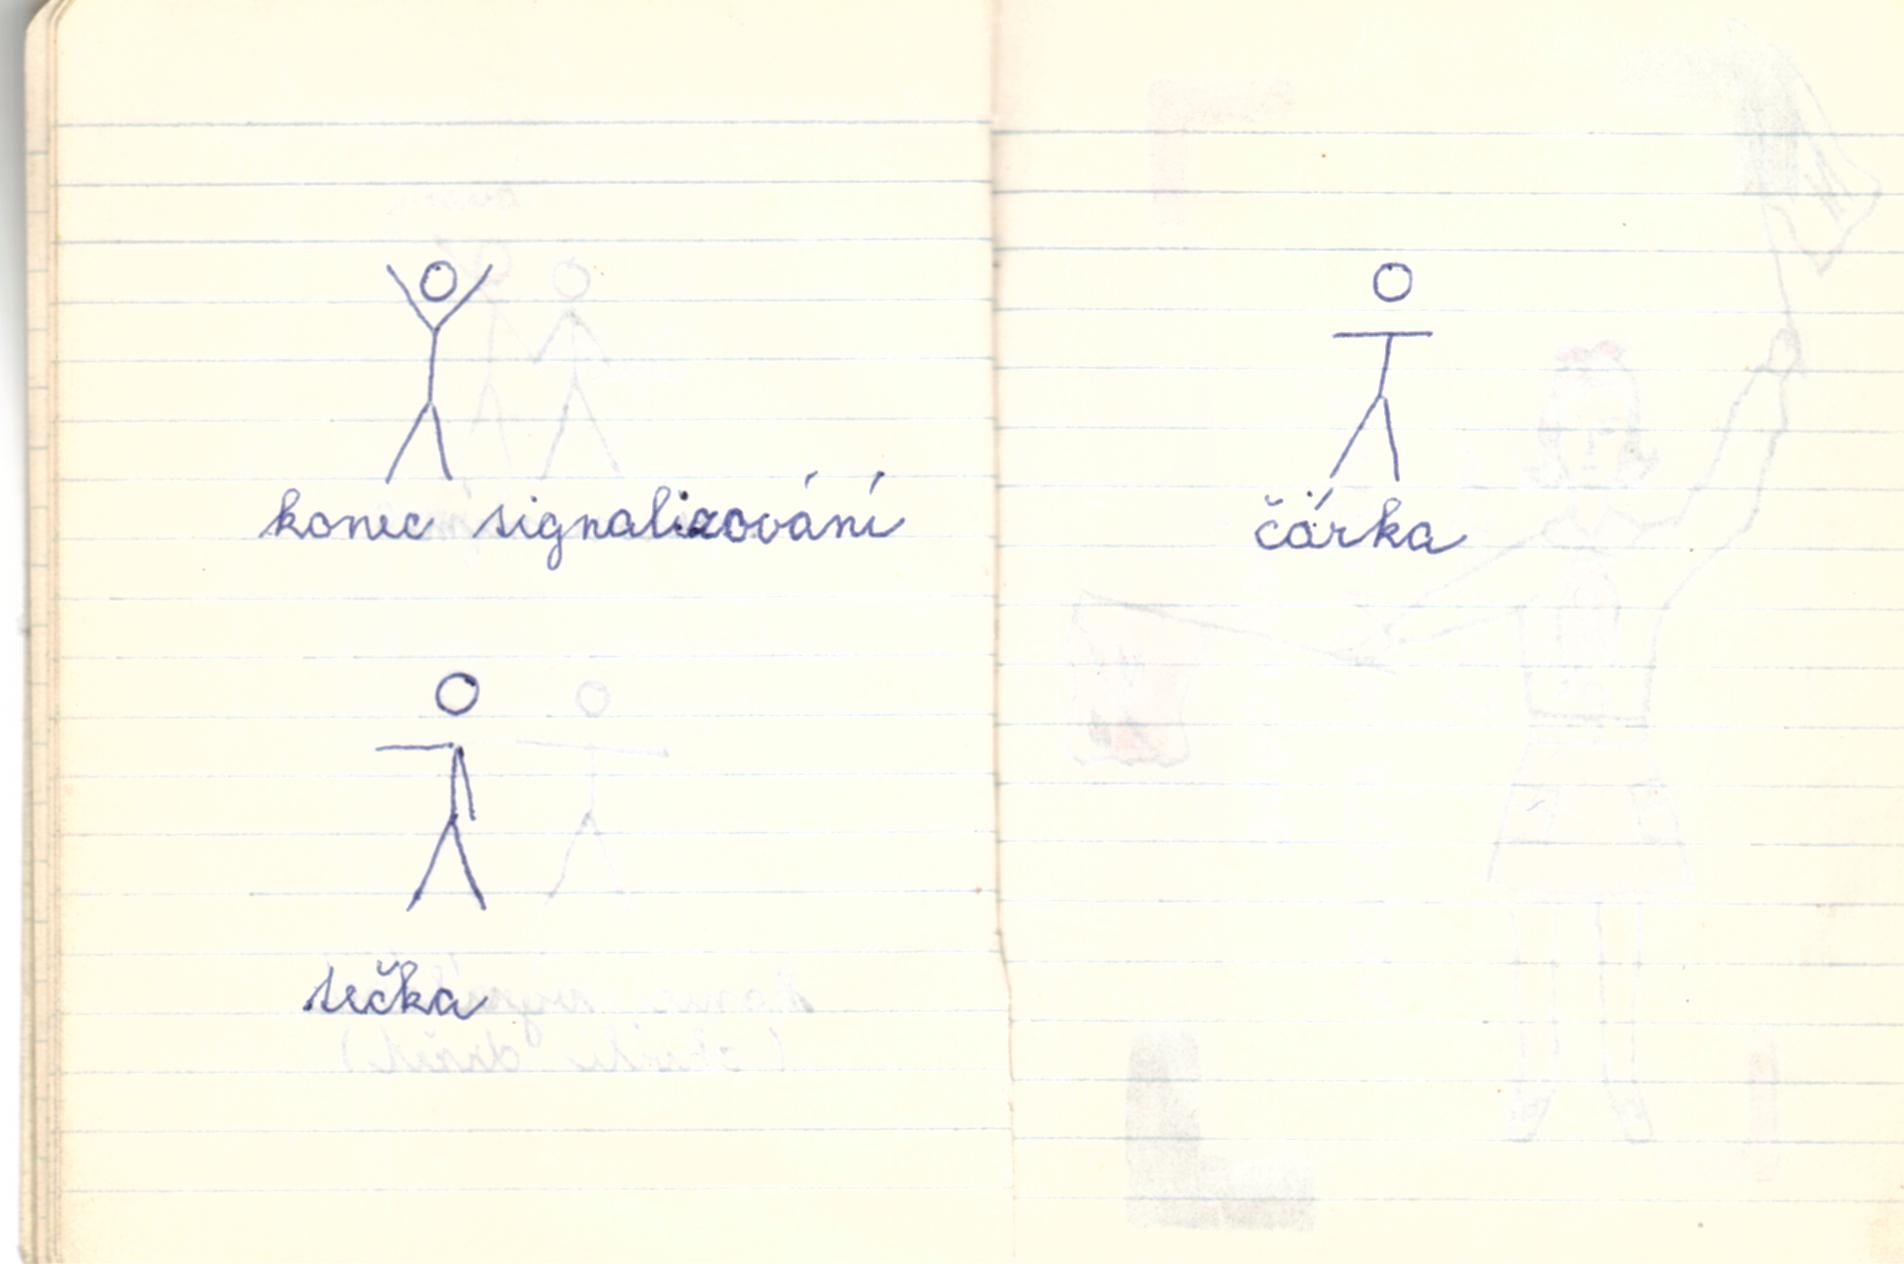 konec signalizování
čárka
tečka